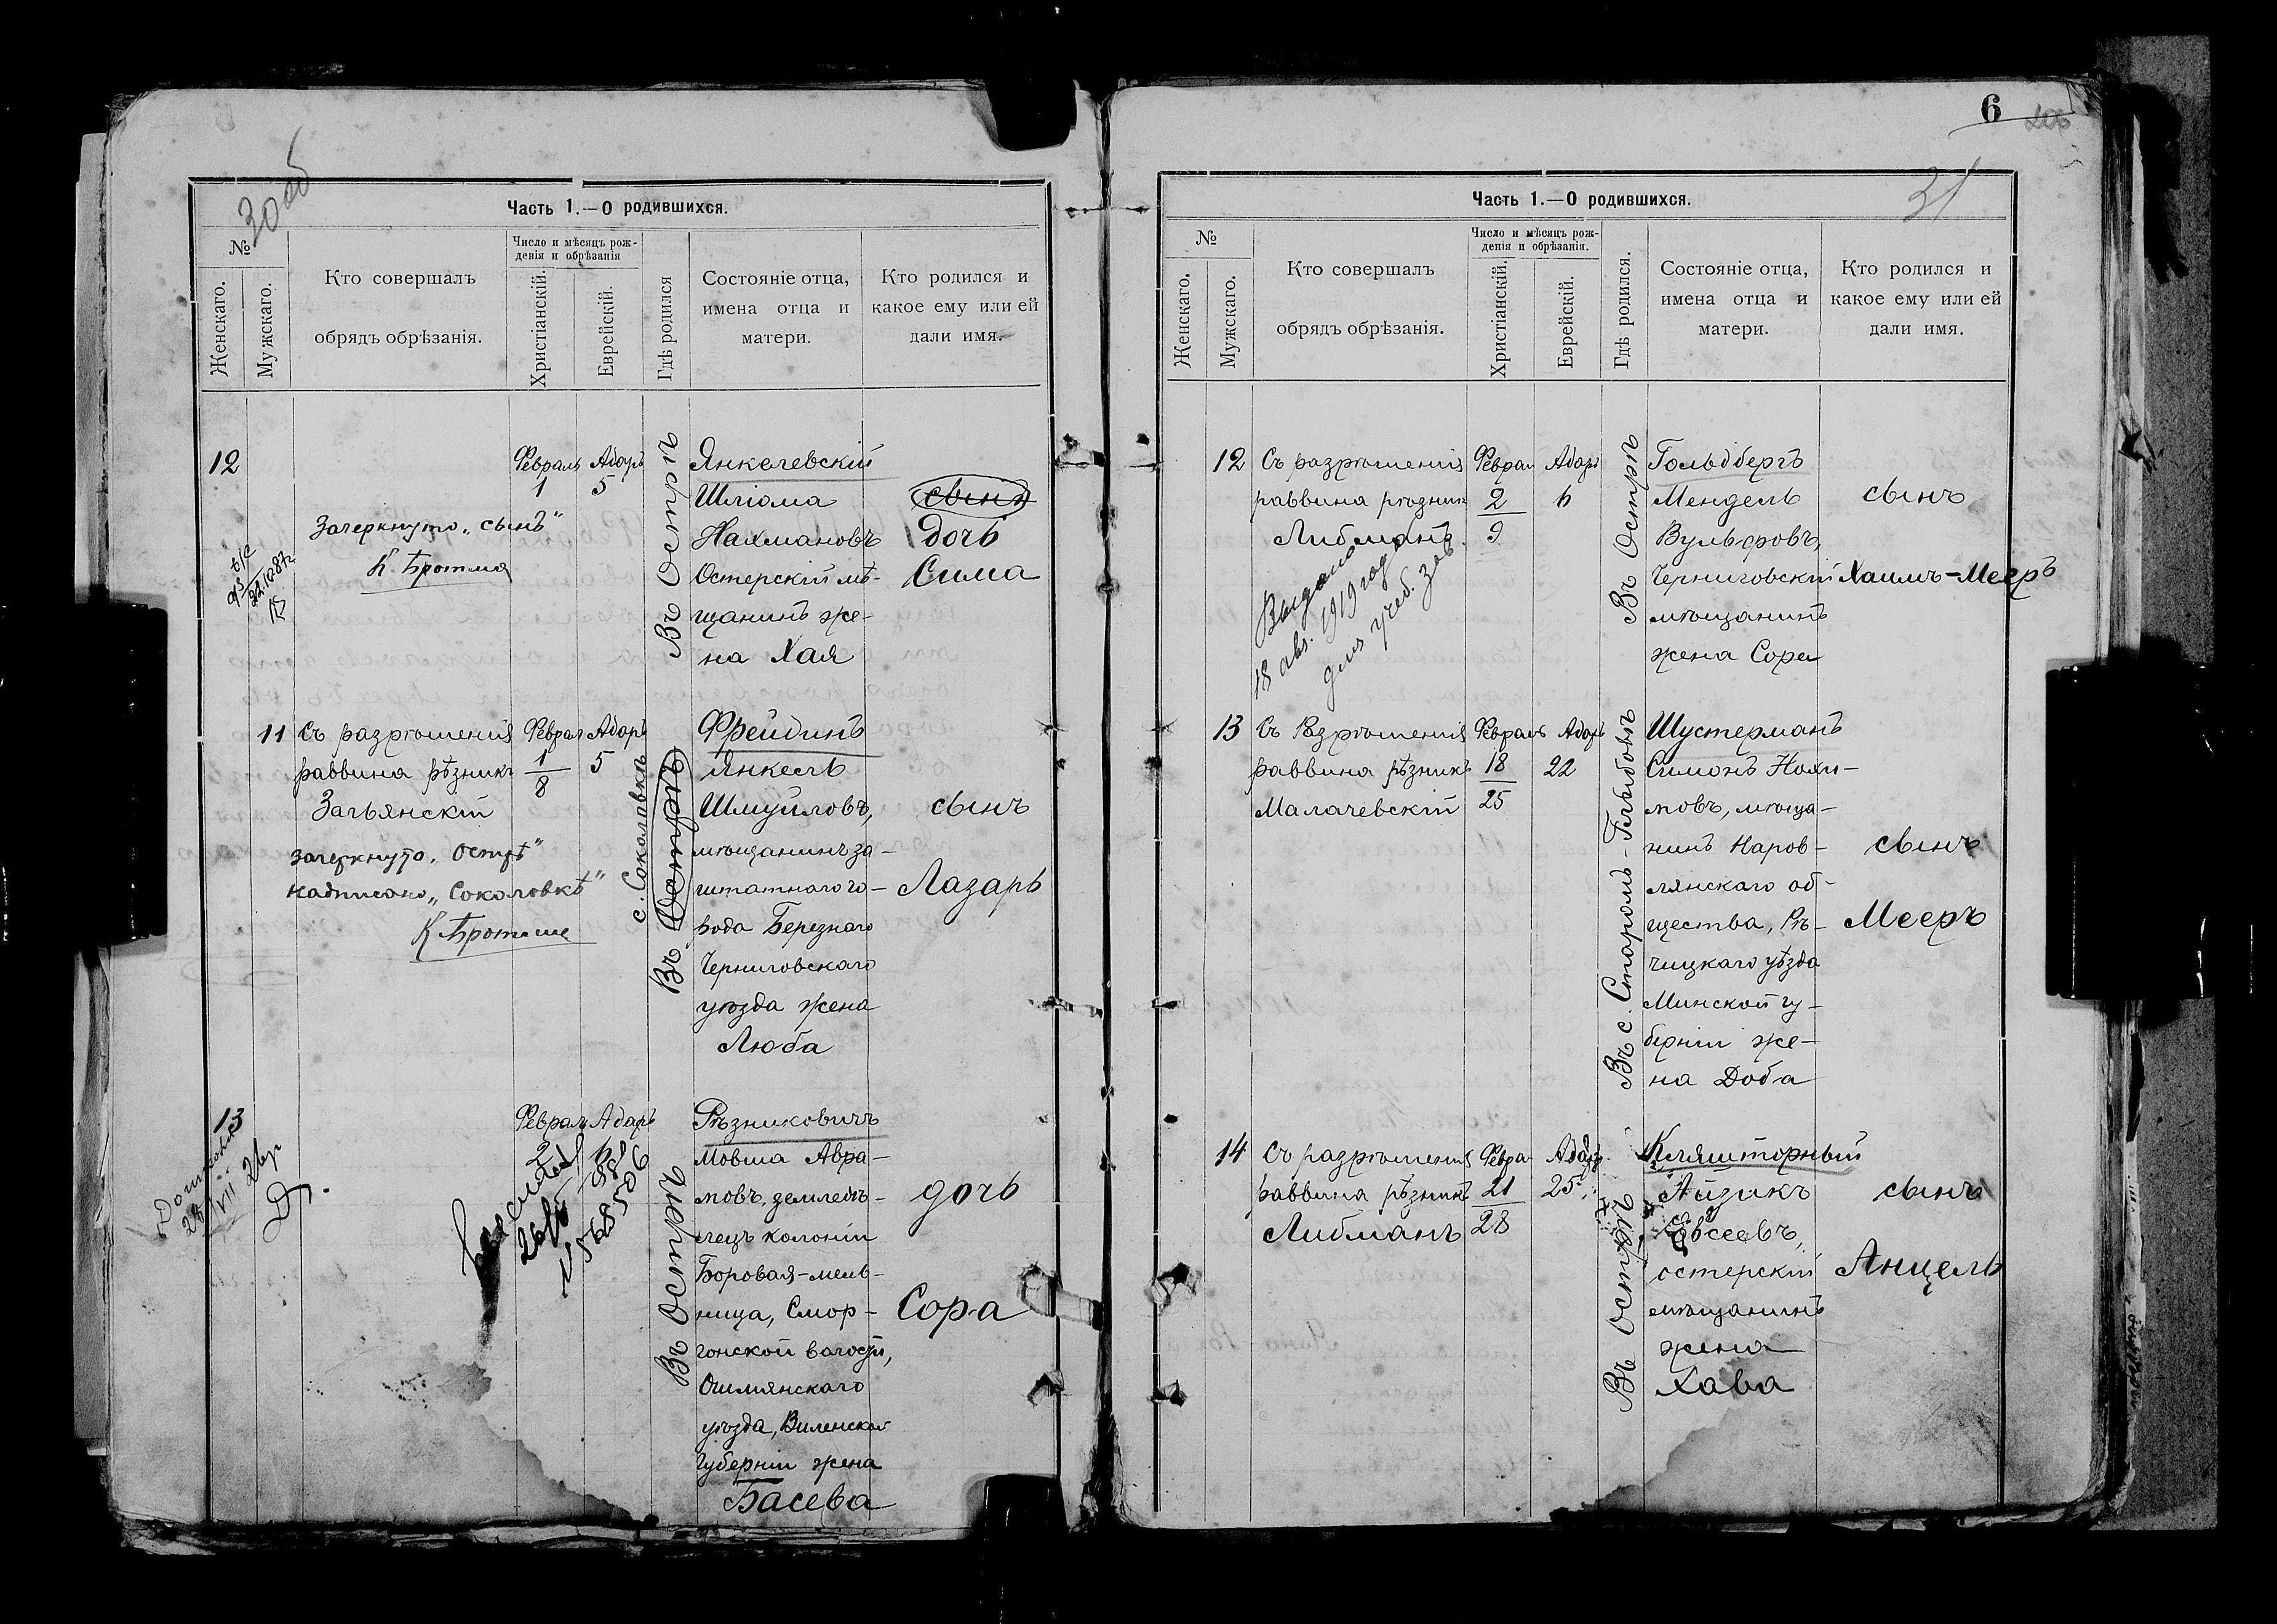 30 об
Часть 1.—О родившихся.
№
Женскаго.
Мужскаго.
Кто совершалъ
обрядъ обрѣзанія.
Число и мѣсяцъ рож-
денія и обрѣзанія
Христіанскій.
Еврейскій.
Гдѣ родился
Состояніе отца,
имена отца и
матери.
Кто родился и
какое ему или ей
дали имя.
12
Зачеркнуто „сынъ“
Февраль
1
Адаръ
5
Въ Острѣ
Янкелевскій
Шліома
Нахмановъ
Остерскій мѣ-
щанинъ же-
на Хая
сынъ
дочь
Сима
11
Съ разрѣшенія
раввина рѣзникъ
Зачьянскій
зачеркнуто „Острѣ“
надписано „Соколовкѣ“
Феврал
1
8
Адаръ
5
с. Соколовкѣ
Въ Острѣ
Фрейдинъ
Янкель
Шмуйловъ,
мѣщанинъ за-
штатнаго го-
рода Березнаго
Черниговскаго
уѣзда жена
Люба
сынъ
Лазарь
13
Феврал
2
Адаръ
6
Въ Острѣ
Рѣзниковичъ
Мовша Авра-
мовъ, землед­ѣ-
лецъ колоніи
Боровая-мель-
ница, Смор-
гонской волости,
Ошмянскаго
уѣзда, Виленской
губерніи жена
Басева
дочь
Сора
6
31
Часть 1.—О родившихся.
№
Женскаго.
Мужскаго.
Кто совершалъ
обрядъ обрѣзанія.
Число и мѣсяцъ рож-
денія и обрѣзанія.
Христіанскій.
Еврейскій.
Гдѣ родился.
Состояніе отца,
имена отца и
матери.
Кто родился и
какое ему или ей
дали имя.
12
Съ разрѣшенія
раввина рѣзник
Либманъ.
Выдана
18 авг. 1919 года
для учеб. зав.
Феврал
2
9
Адаръ
6
Въ Острѣ
Гольдбергъ
Мендель
Вульфовъ,
Черниговскій
мѣщанинъ
жена Сора
сынъ
Хаимъ-Мееръ
13
Съ Разрѣшенія
раввина рѣзникъ
Малачевскій
Февраль
18
25
Адаръ
22
Въ с. Старомъ-Глыбовъ
Шустерманъ
Симонъ Нохи-
мовъ, мѣща-
нинъ Наров-
лянскаго об-
щества, Рѣ-
чицкаго уѣзда
Минской гу-
берніи же-
на Доба
сынъ
Мееръ
14
Съ разрѣшенія
раввина рѣзникъ
Либманъ
Февра
21
28
Адаръ
25
Въ Острѣ
Кляшторный
Айзикъ
Овсеевъ,
остерскій
мѣщанинъ
жена
Хава
сынъ
Анцель